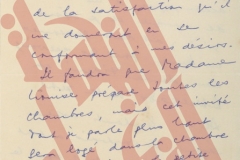 de la satisfaction qu'il
me donnerait en se
conformant à mes désirs.
Il faudra que Madame
Louise prépare toutes les
chambres, mais cet invité
dont je parle plus haut
sera logé dans la chambre